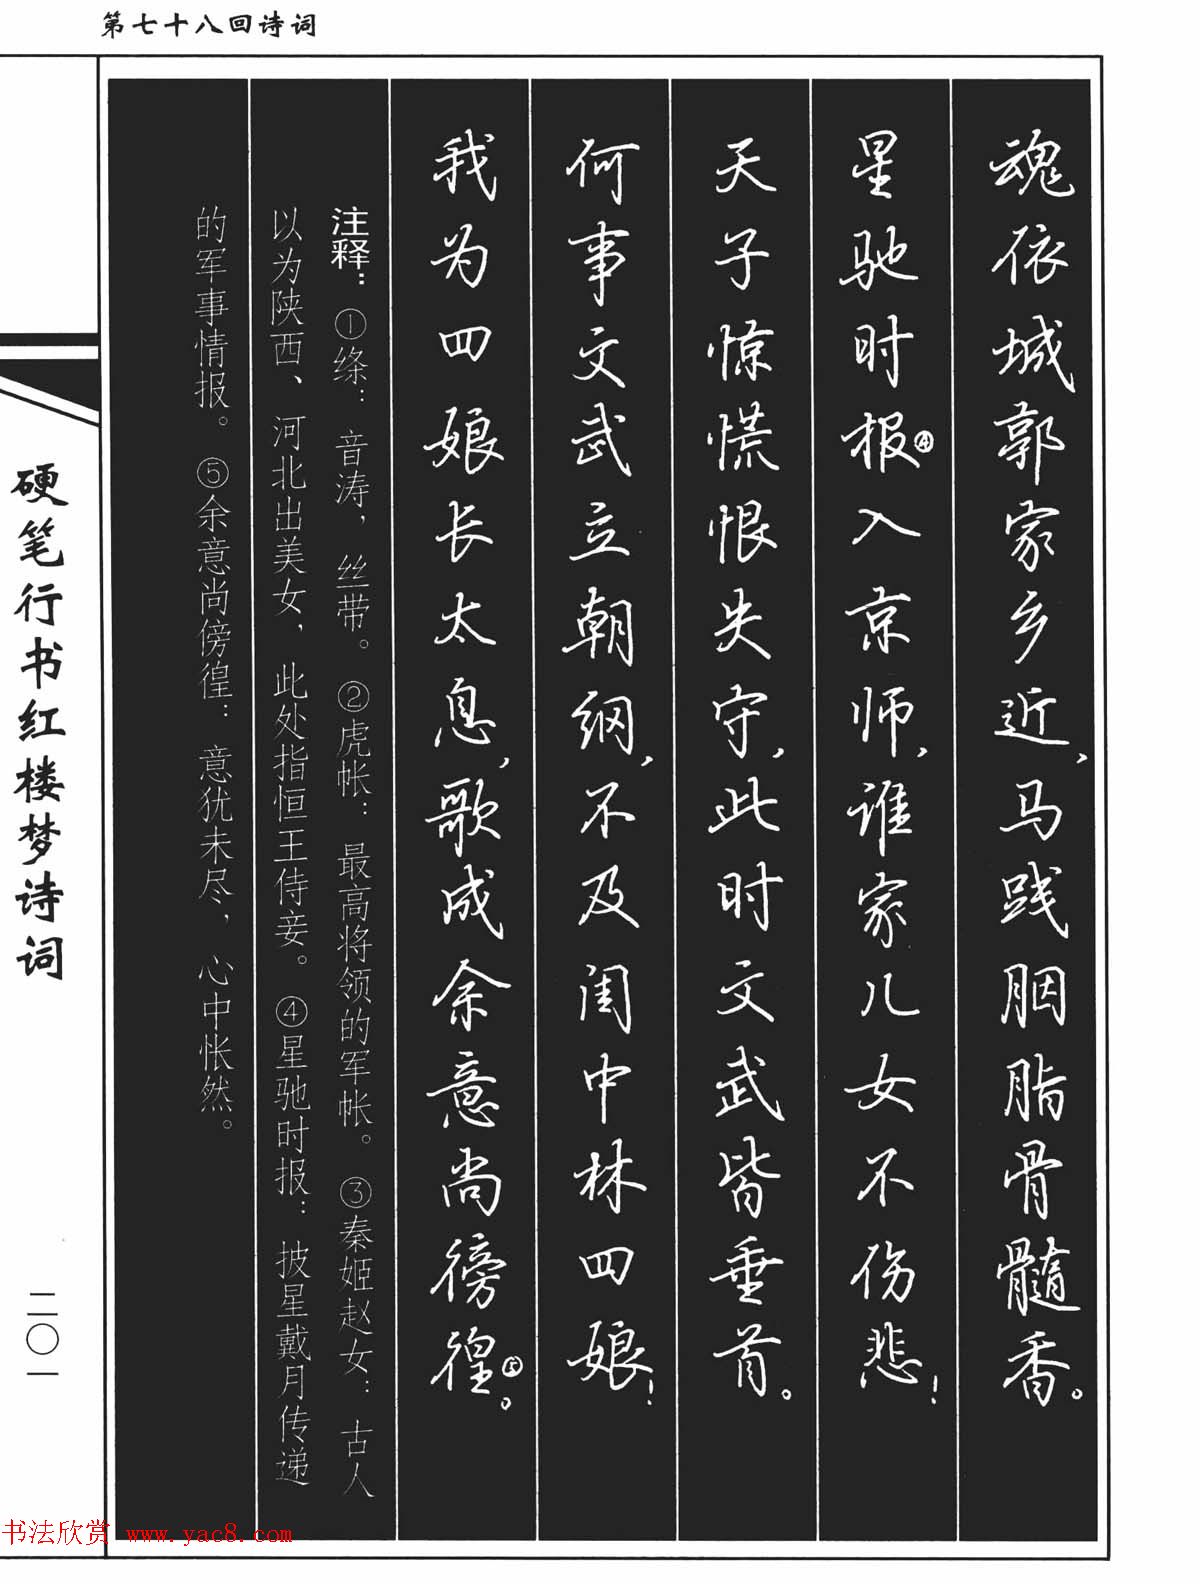 第七十八回诗词
魂依城郭家乡近,马践胭脂骨髓香。
星驰时报④入京师,谁家儿女不伤悲!
天子惊慌恨失守,此时文武皆垂首。
何事文武立朝纲,不及闺中林四娘!
我为四娘长太息,歌成余意尚徬徨⑤。
注释:①绦:音涛,丝带。②虎帐:最高将领的军帐。③秦姬赵女:古人
以为陕西、河北出美女,此处指恒王侍妾。④星驰时报:披星戴月传递
的军事情报。⑤余意尚徬徨:意犹未尽,心中怅然。
硬笔行书红楼梦诗词
二〇一
书法欣赏 www.yac8.com